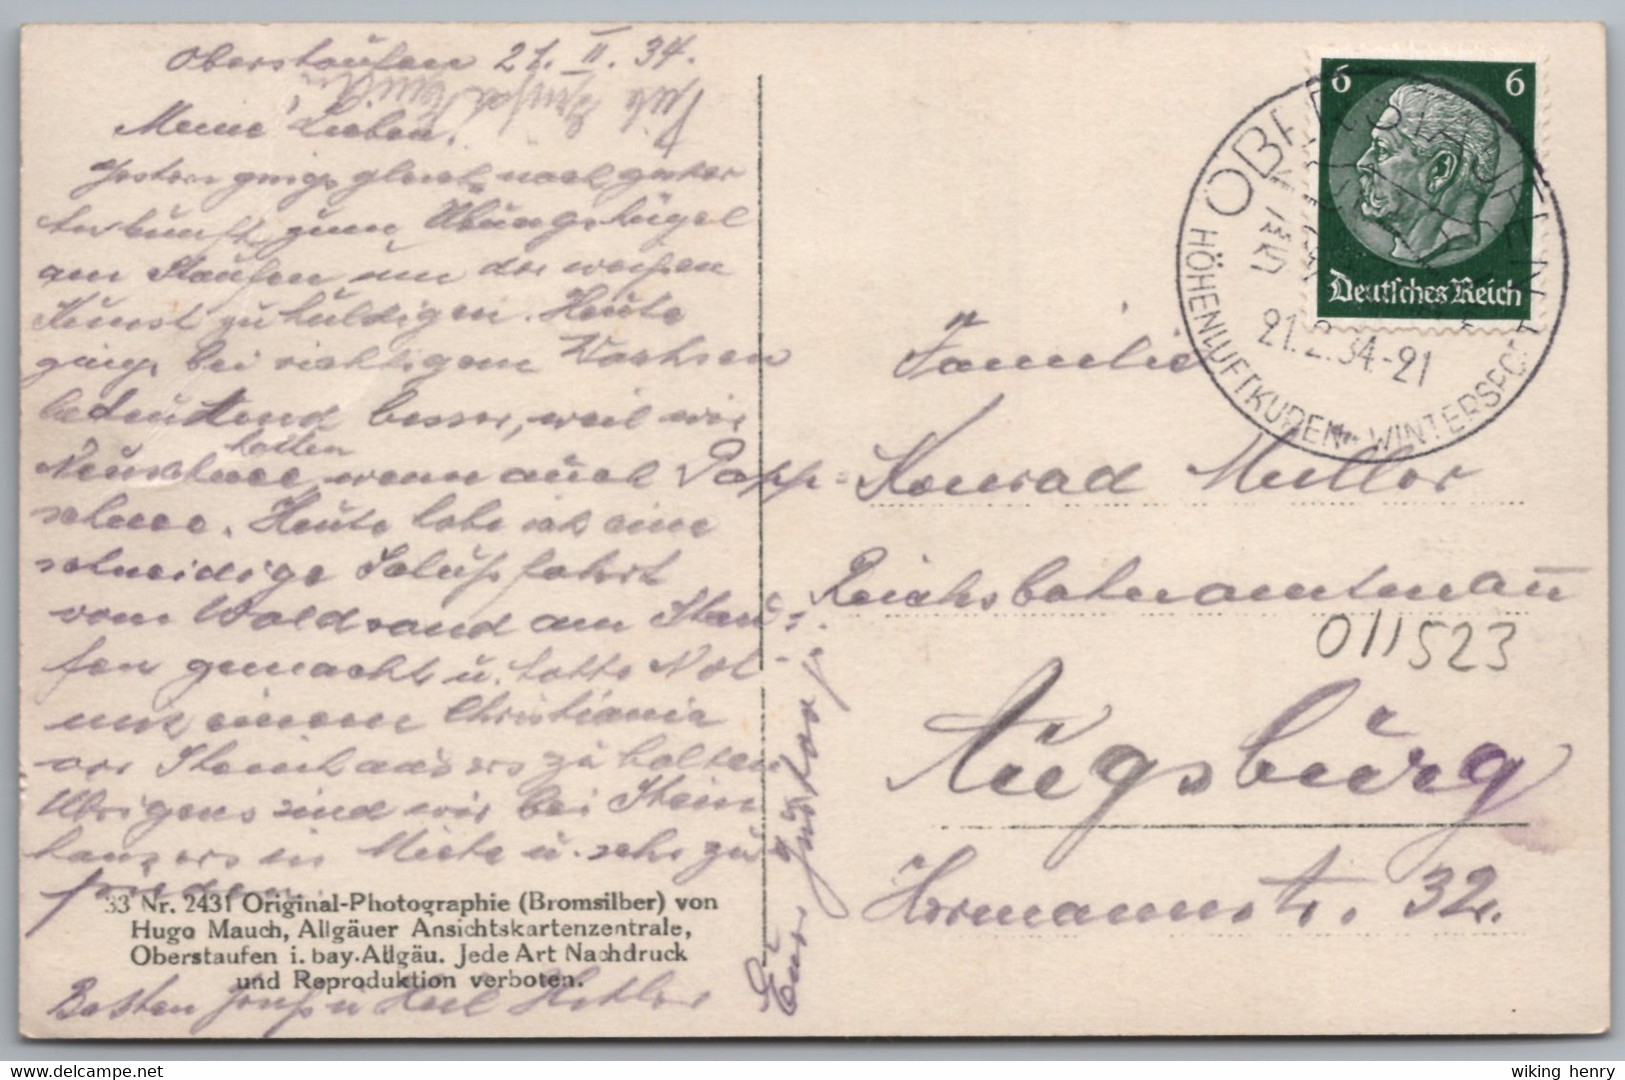 Oberstaufen 21. II. 34.
Meine Lieben!
Gestern gings gleich nach guter
Ankunft zum Übungshügel
am Staufen um der weißen
Kunst zu huldigen. Heute
gings bei richtigem Wachsen
bedeutend besser, weil wir
Neuschnee hatten, wenn auch Papp-
schnee. Heute habe ich eine
schneidige Schußfahrt
vom Waldrand am Stau-
fen gemacht u. hatte Not
mit einem Christiania
vor Steinhausers zu halten
Übrigens sind wir bei Stein
hausers in Miete u. sehr zu
frieden.
33 Nr. 2431 Original-Photographie (Bromsilber) von
Hugo Mauch, Allgäuer Ansichtskartenzentrale,
Oberstaufen i. bay. Allgäu. Jede Art Nachdruck
und Reproduktion verboten.
Besten Gruß u Heil Hitler
Euer Gustav
6 6
Deutsches Reich
OBERSTAUFEN
21.2.34.-21
HÖHENLUFTKUREN WINTERSPORT
Familie
Konrad Müller
Reichsbahnamtmann
011523
Augsburg
Hermannstr. 32.
wiking henry